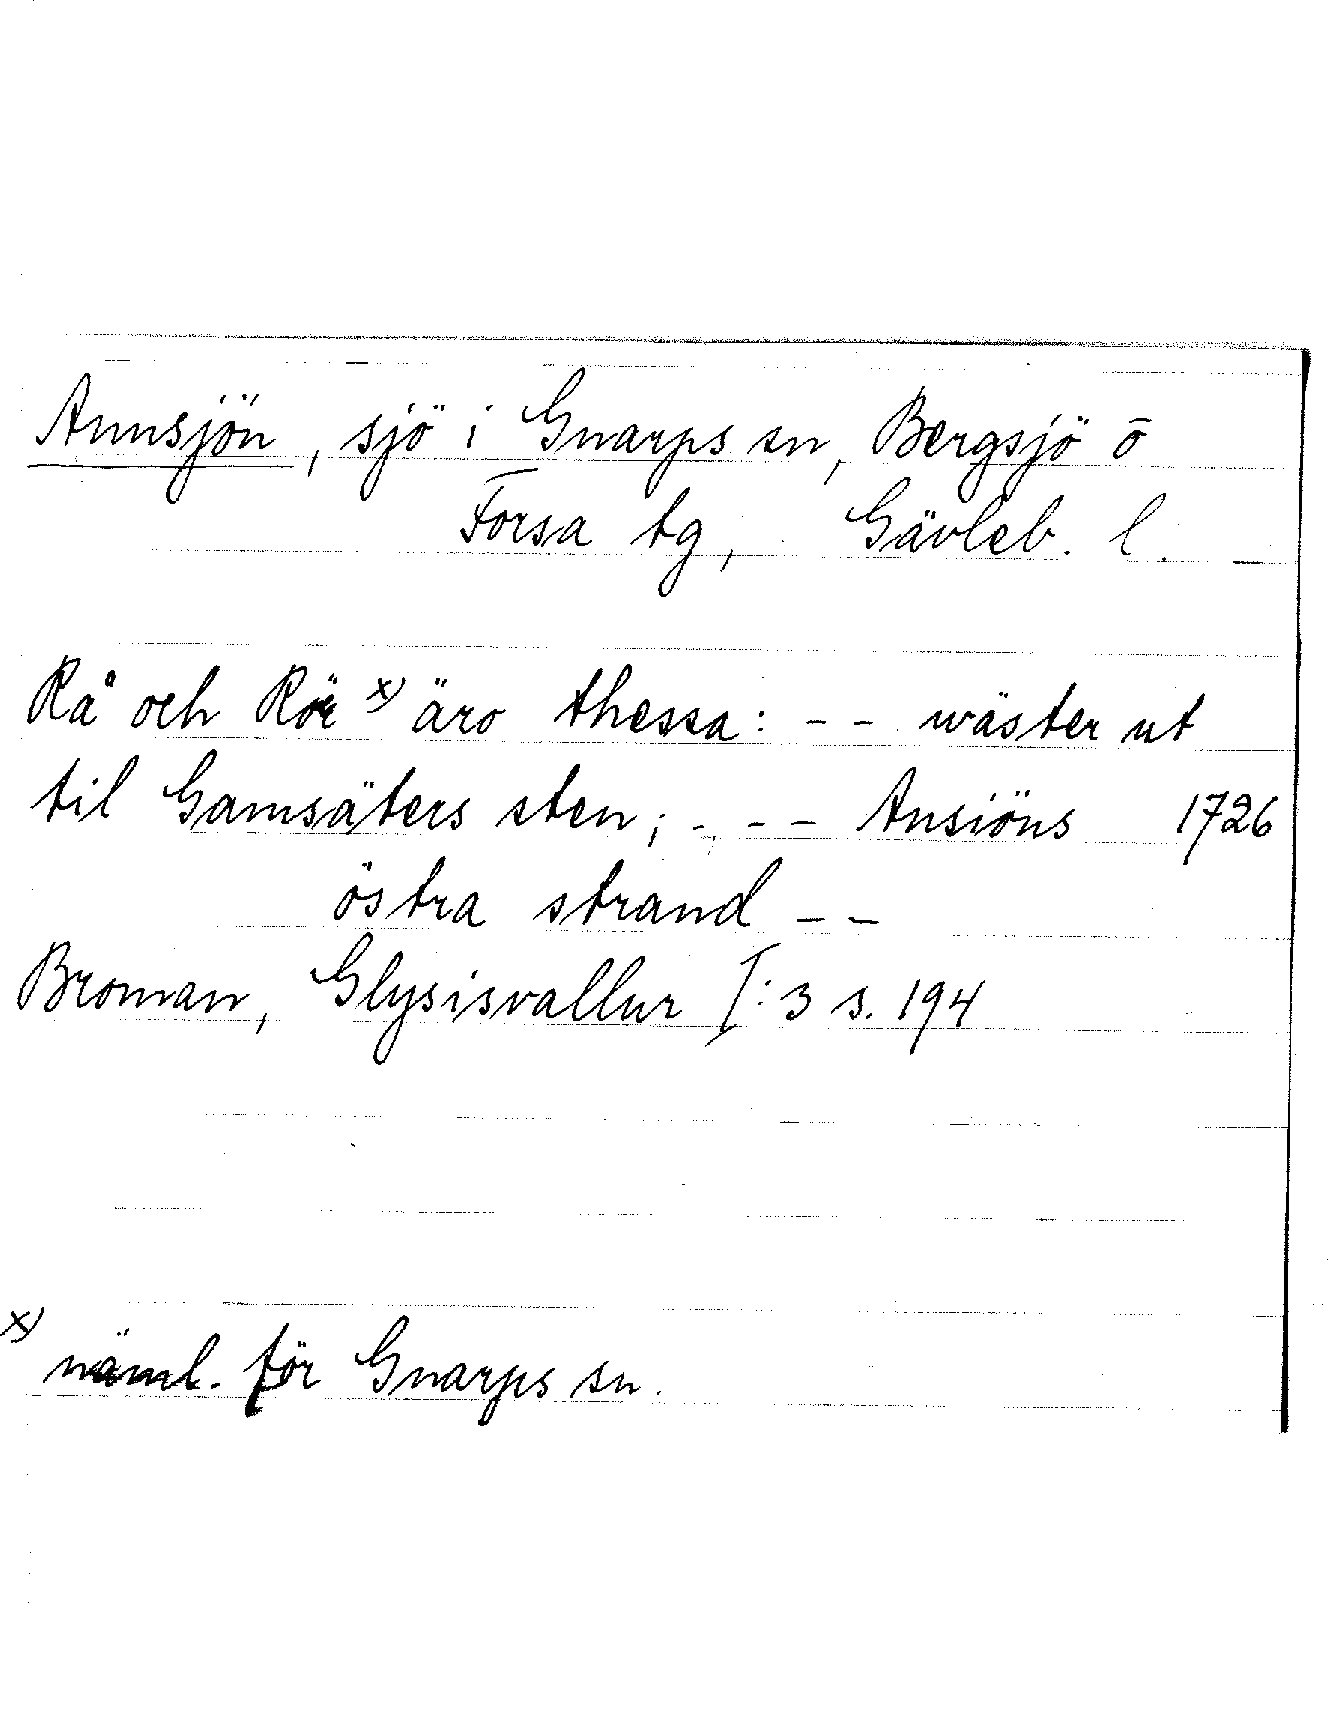 Annsjön, sjö i Gnarps sn, Bergsjö o
Forsa tg, Gävleb. l.
Rå och Rör x) äro thessa: - - wäster ut
til Gamsäters sten; - - - Ansiöns 1726
östra strand - -
Broman, Glysisvallur I:3 s. 194
x) näml. för Gnarps sn.